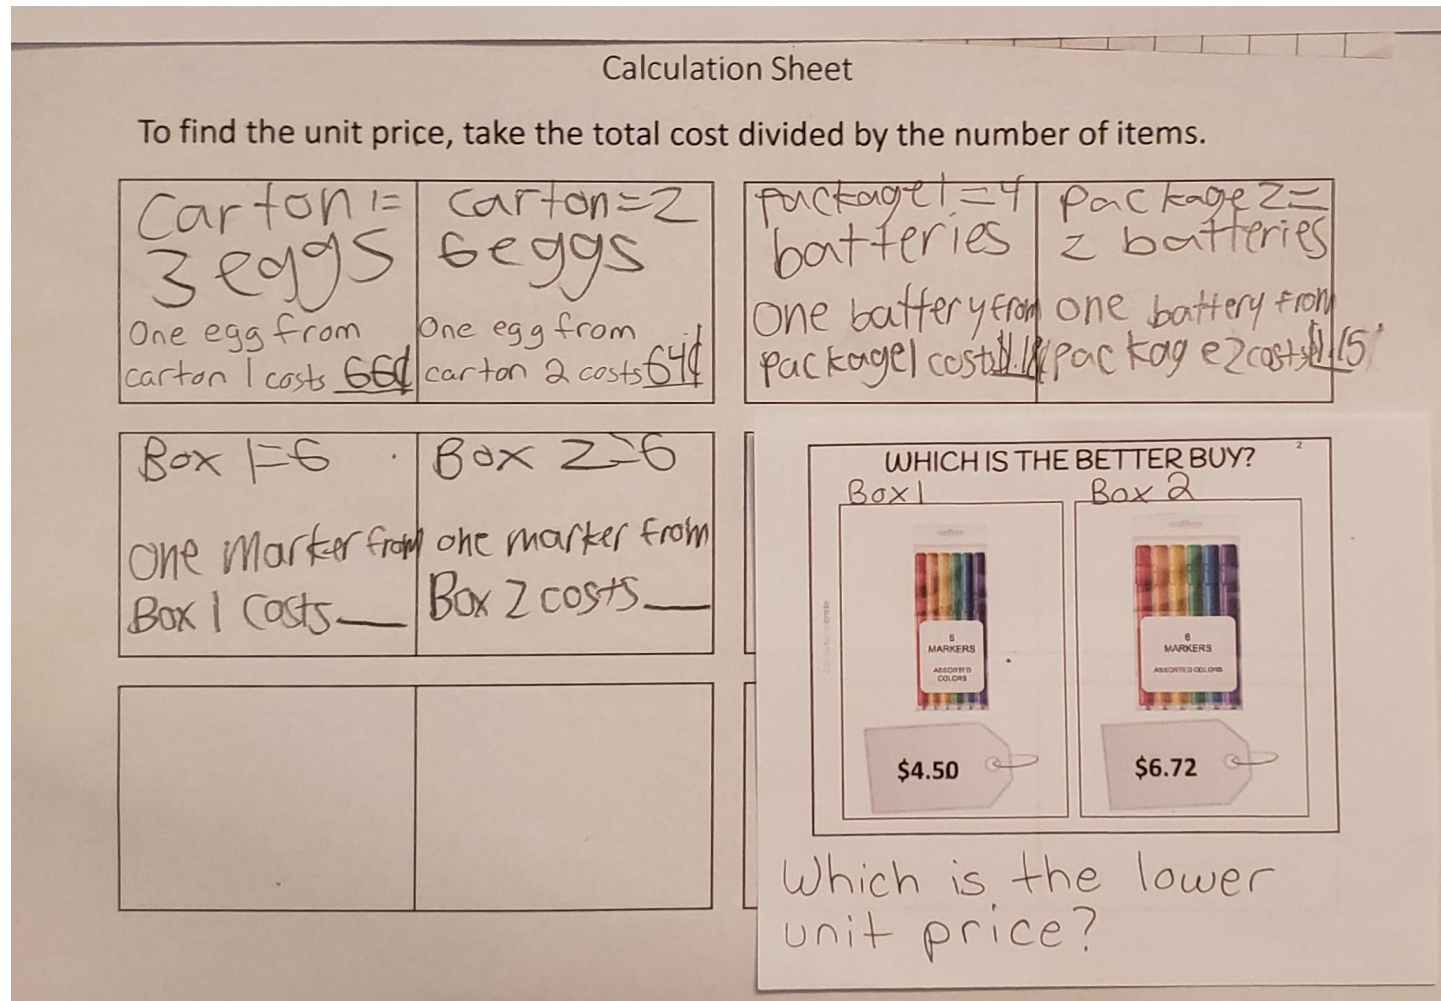 Calculation Sheet
To find the unit price, take the total cost divided by the number of items.
Carton 1=
3 eggs
One egg from
carton 1 costs 66¢
carton=2
6 eggs
One egg from
carton 2 costs 64¢
package1=4
batteries
One battery from
package1 costs
package 2=
2 batteries
one battery from
package2 costs $1.15
Box 1=6
one marker from
Box 1 costs__
Box 2=6
one marker from
Box 2 costs__
2
WHICH IS THE BETTER BUY?
Box 1
Box 2
6
MARKERS
ASSORTED
COLORS
6
MARKERS
ASSORTED COLORS
$4.50
$6.72
Which is the lower
unit price?